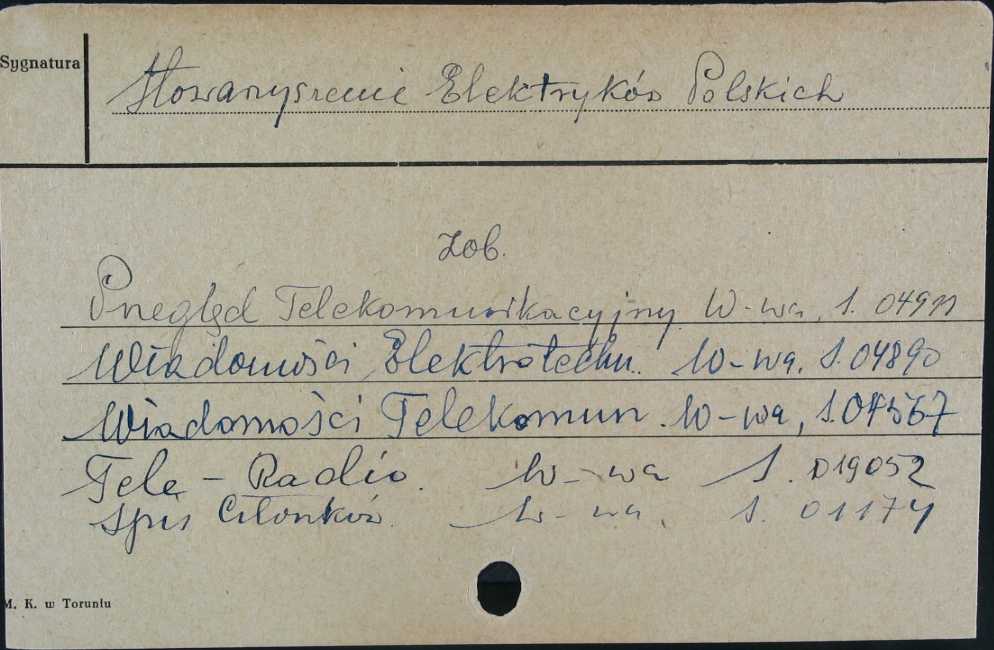 Sygnatura
Stowarzyszenie Elektryków Polskich
Zob.
Przegląd Telekomunikacyjny W-wa, S. 04911
Wiadomości Elektrotechn. W-wa, S. 04890
Wiadomości Telekomun. W-wa, S. 04567
Tele-Radio. W-wa S. 019052
Spis Członków. W-wa, S. 01174
M. K. w Toruniu